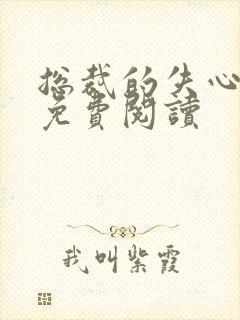 总裁的失心
免費閱讀
我叫紫霞